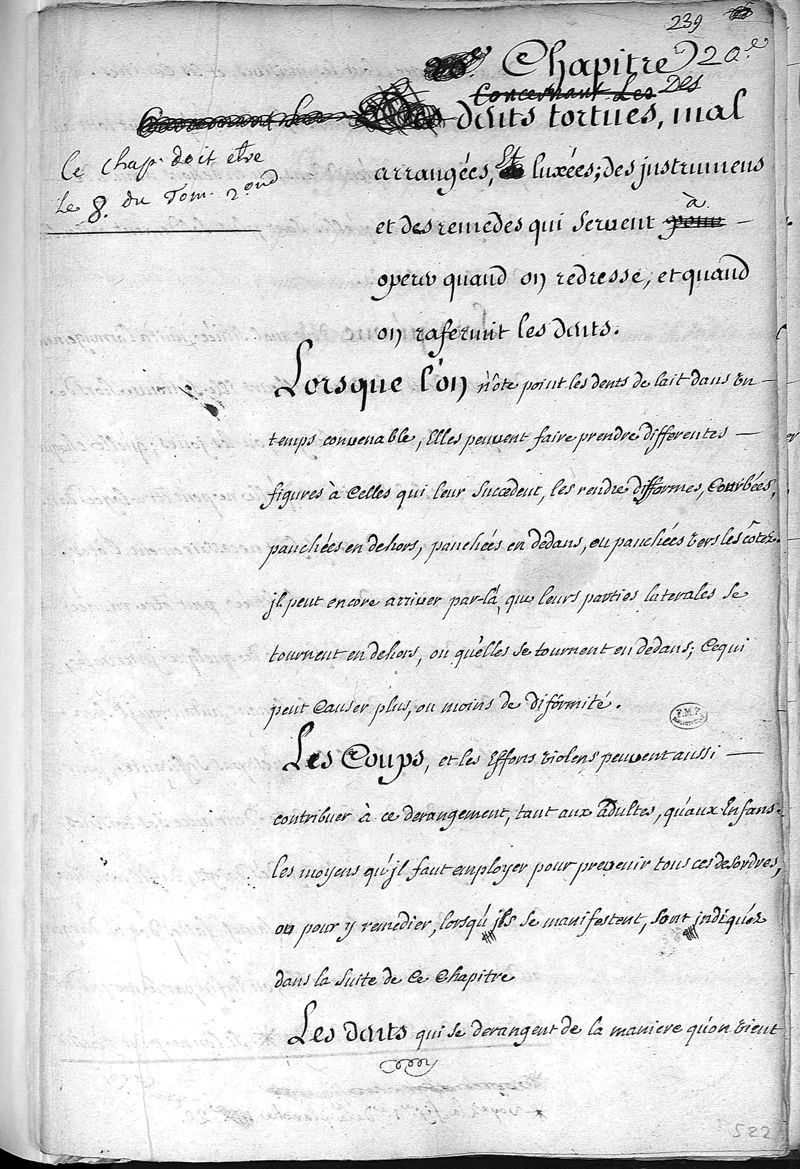 239
Chapitre 20.e
Concernant Les Des
dents tortues, mal
Ce Chap. doit etre
Le 8. du Tom. 2ond
arrangées, Et luxées; des jnstrumens
à
et des remedes qui servent pour —
operer quand on redresse, et quand
on rafermit les dents.
Lorsque l'on n'ôte point les dents de lait dans un —
temps convenable, Elles peuvent faire prendre differentes —
figures à Celles qui leur Succedent, les rendre difformes, Courbées,
panchées en dehors, panchées en dedans, ou panchées vers les côtez.
jl peut encore arriver par-là, que leurs parties laterales se
tournent en dehors, ou qu'elles se tournent en dedans; Ce qui
peut Causer plus, ou moins de diformité.
P.M.F.
BIBLIOTHEQUE
Les Coups, et les Efforts violens peuvent aussi —
contribuer à ce derangement, tant aux adultes, qu'aux Enfans.
les moyens qu'jl faut employer pour prevenir tous ces desordres,
ou pour y remedier, lorsqu'jls se manifestent, sont jndiquéz
dans la Suite de Ce Chapitre
Les dents qui se derangent de la maniere qu'on vient
522